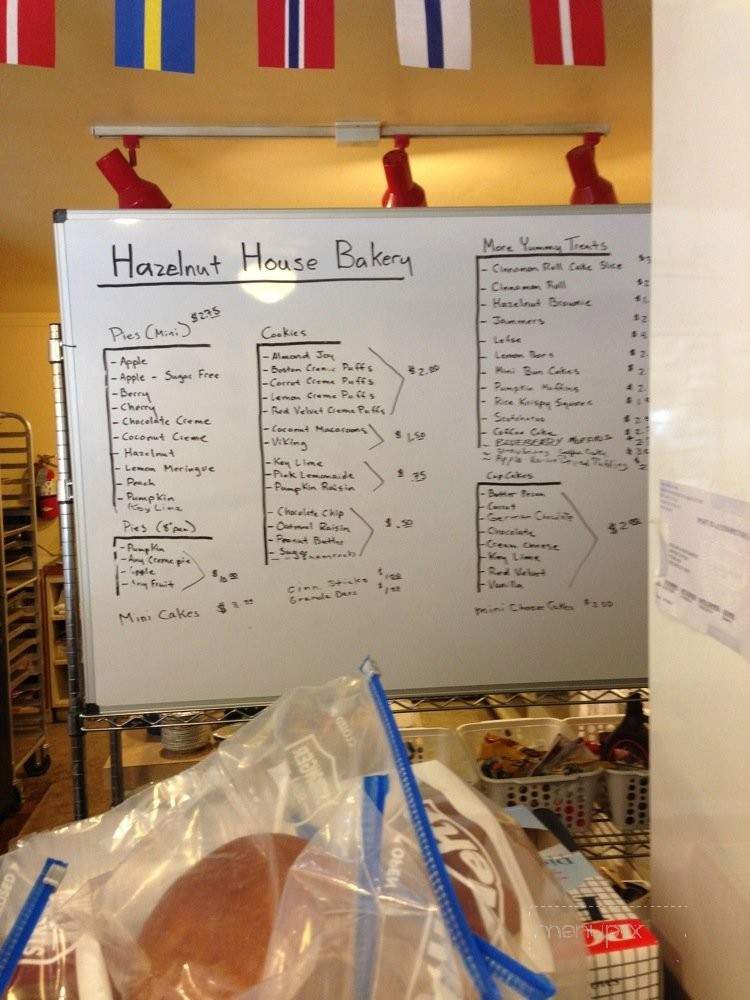 Hazelnut House Bakery
Pies (Mini) $2.75
- Apple
- Apple - Sugar Free
- Berry
- Cherry
- Chocolate Creme
- Coconut Creme
- Hazelnut
- Lemon Meringue
- Peach
- Pumpkin
Key Lime
Pies (8" pan)
- Pumpkin
- Any Creme pie
- Apple
- Any Fruit
Mini Cakes
Cookies
- Almond Joy
- Boston Creme Puffs
- Carrot Creme Puffs
- Lemon Creme Puffs
- Red Velvet Creme Puffs
$2.00
- Coconut Macaroons
- Viking
$1.50
- Key Lime
- Pink Lemonade
- Pumpkin Raisin
$.75
- Chocolate Chip
- Oatmeal Raisin
- Peanut Butter
- Sugar
$.50
Cinn Sticks
Granola Bars
More Yummy Treats
- Cinnamon Roll Cake Slice
- Cinnamon Roll
- Hazelnut Brownie
- Jammers
- Lefse
- Lemon Bars
- Mini Bun Cakes
- Pumpkin Muffins
- Rice Krispy Squares
- Scotcharoo
- Coffee Cake
- BLUEBERRY MUFFINS
CupCakes
- Butter Brown
- Carrot
- German Chocolate
- Chocolate
- Cream Cheese
- Key Lime
- Red Velvet
- Vanilla
$2.00
Mini Cheese Cakes $2.00
OPEN
menupix